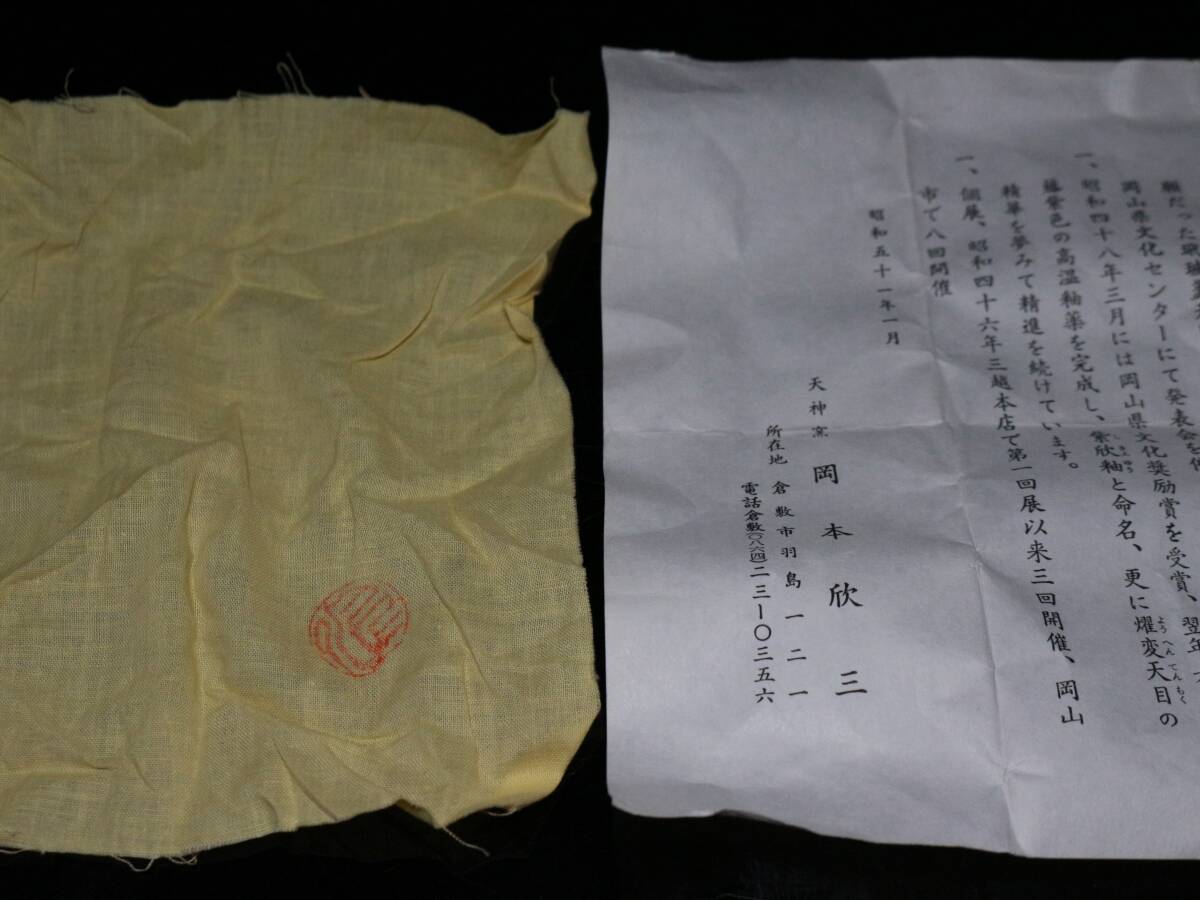 願だった
岡山県文化センターにて発表会を
一、昭和四十八年三月には岡山県文化奨励賞を受賞、翌年
藤紫色の高温釉薬を完成し、紫欣釉と命名、更に燿変天目の
精華を夢みて精進を続けています。
一、個展、昭和四十六年三越本店で第一回展以来三回開催、岡山
市で八回開催
昭和五十一年一月
天神窯 岡本欣三
所在地 倉敷市羽島一二一
電話倉敷(〇八六四)二三ー〇三五六